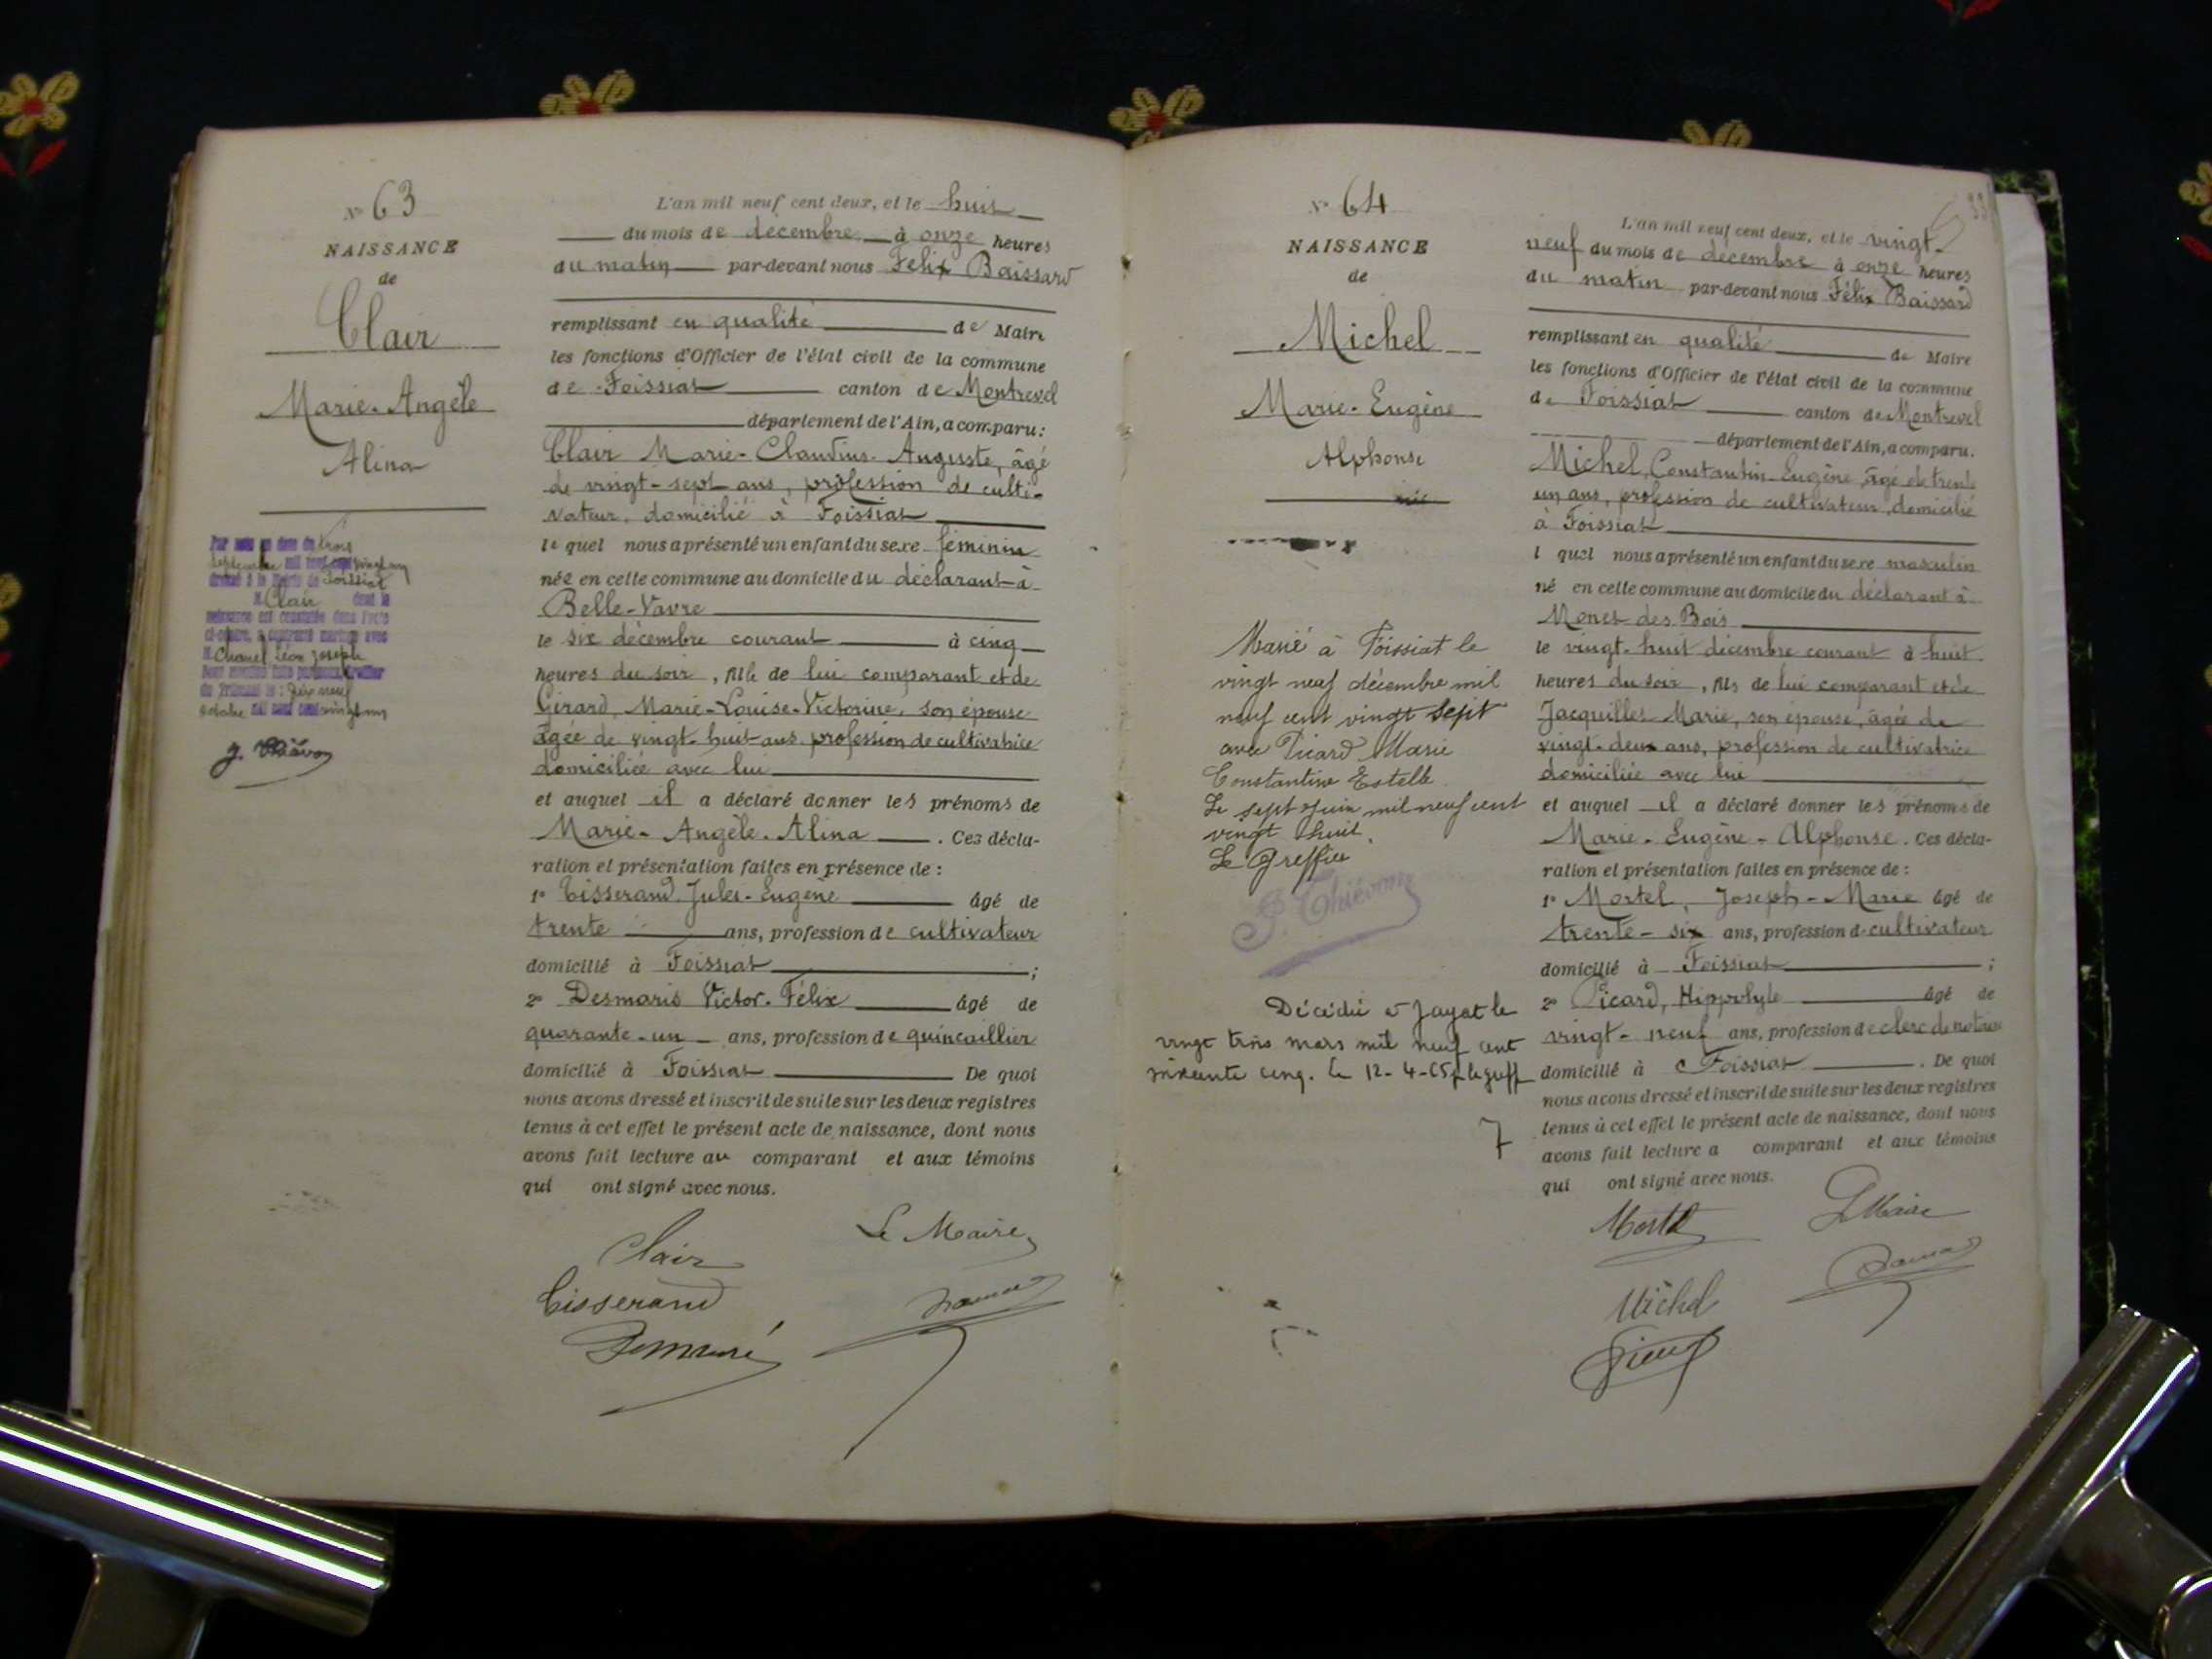 N° 63
NAISSANCE
de
Clair
Marie-Angèle
Alina
Par acte en date du trois
septembre mil neuf cent vingt un
dressé à la Mairie de Foissiat
M Clair dont la
naissance est constatée dans l'acte
ci-contre, a contracté mariage avec
M Chanel Léon Joseph
du Tribunal le : dix neuf
octobre mil neuf cent vingt un
L'an mil neuf cent deux, et le huit
du mois de décembre à onze heures
du matin par-devant nous Félix Baissard
remplissant en qualité de Maire
les fonctions d'Officier de l'état civil de la commune
de Foissiat canton de Montrevel
département de l'Ain, a comparu :
Clair Marie-Claudius-Auguste, âgé
de vingt-sept ans, profession de culti-
vateur, domicilié à Foissiat
le quel nous a présenté un enfant du sexe féminin
née en cette commune au domicile du déclarant à
Belle-Vavre
le six décembre courant à cinq
heures du soir, fille de lui comparant et de
Girard, Marie-Louise-Victorine, son épouse
âgée de vingt-huit ans profession de cultivatrice
domiciliée avec lui
et auquel il a déclaré donner les prénoms de
Marie-Angèle-Alina . Ces décla-
ration et présentation faites en présence de :
1° Tisserand Jules-Eugène âgé de
trente ans, profession de cultivateur
domicilié à Foissiat ;
2° Desmaris Victor-Félix âgé de
quarante-un ans, profession de quincaillier
domicilié à Foissiat De quoi
nous avons dressé et inscrit de suite sur les deux registres
tenus à cet effet le présent acte de naissance, dont nous
avons fait lecture au comparant et aux témoins
qui ont signé avec nous.
Le Maire,
Clair
Tisserand
N° 64
NAISSANCE
de
Michel
Marie-Eugène
Alphonse
Marié à Foissiat le
vingt neuf décembre mil
neuf cent vingt sept
avec Picard Marie
Constantine Estelle
Le sept juin mil neuf cent
vingt huit.
Le Greffier
Décédé à Jayat le
vingt trois mars mil neuf cent
soixante cinq. le 12-4-65 le greff
7
33
L'an mil neuf cent deux, et le vingt-
neuf du mois de décembre à onze heures
du matin par-devant nous Félix Baissard
remplissant en qualité de Maire
les fonctions d'Officier de l'état civil de la commune
de Foissiat canton de Montrevel
département de l'Ain, a comparu.
Michel, Constantin-Eugène, âgé de trente
un ans, profession de cultivateur, domicilié
à Foissiat
l quel nous a présenté un enfant du sexe masculin
né en cette commune au domicile du déclarant à
Monet des Bois
le vingt-huit décembre courant à huit
heures du soir, fils de lui comparant et de
Jacquillet Marie, son épouse, âgée de
vingt-deux ans, profession de cultivatrice
domiciliée avec lui
et auquel il a déclaré donner les prénoms de
Marie-Eugène-Alphonse. Ces décla-
ration et présentation faites en présence de :
1° Mortel, Joseph-Marie âgé de
trente-six ans, profession d cultivateur
domicilié à Foissiat ;
2° Picard, Hippolyte âgé de
vingt-neuf ans, profession de clerc de notaire
domicilié à Foissiat . De quoi
nous avons dressé et inscrit de suite sur les deux registres
tenus à cet effet le présent acte de naissance, dont nous
avons fait lecture a comparant et aux témoins
qui ont signé avec nous.
Mortel
Le Maire
Michel